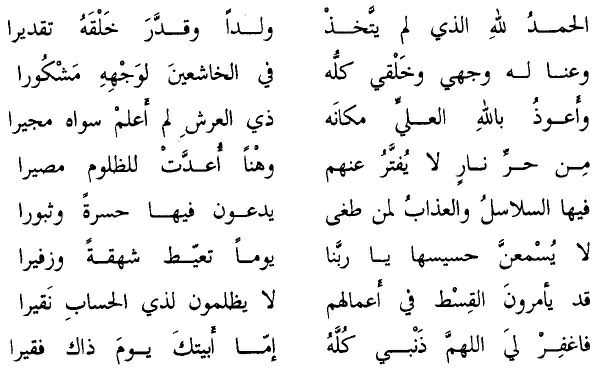 الحمدُ للهِ الذي لم يتَّخذْ ولداً وقدَّرَ خَلْقَهُ تقديرا
وعنا له وجهي وخَلْقي كلُّه في الخاشعينَ لوَجْهِهِ مَشْكُورا
وأَعوذُ باللهِ العليِّ مكانَه ذي العرشِ لم أَعلمْ سواه مجيرا
مِن حرِّ نارٍ لا يُفتَّرُ عنهم وهْناً أُعدَّتْ للظلوم مصيرا
فيها السلاسلُ والعذابُ لمن طغى يدعون فيها حسرةً وثبورا
لا يُسْمعنَّ حسيسها يا ربَّنا يوماً تعيّط شهقةً وزفيرا
قد يأمرونَ القِسْط في أعمالهم لا يظلمون لذي الحسابِ نَقيرا
فاغفِرْ ليَ اللهمَّ ذَنْبي كُلَّهُ إمّا أَبيتكَ يومَ ذاك فقيرا